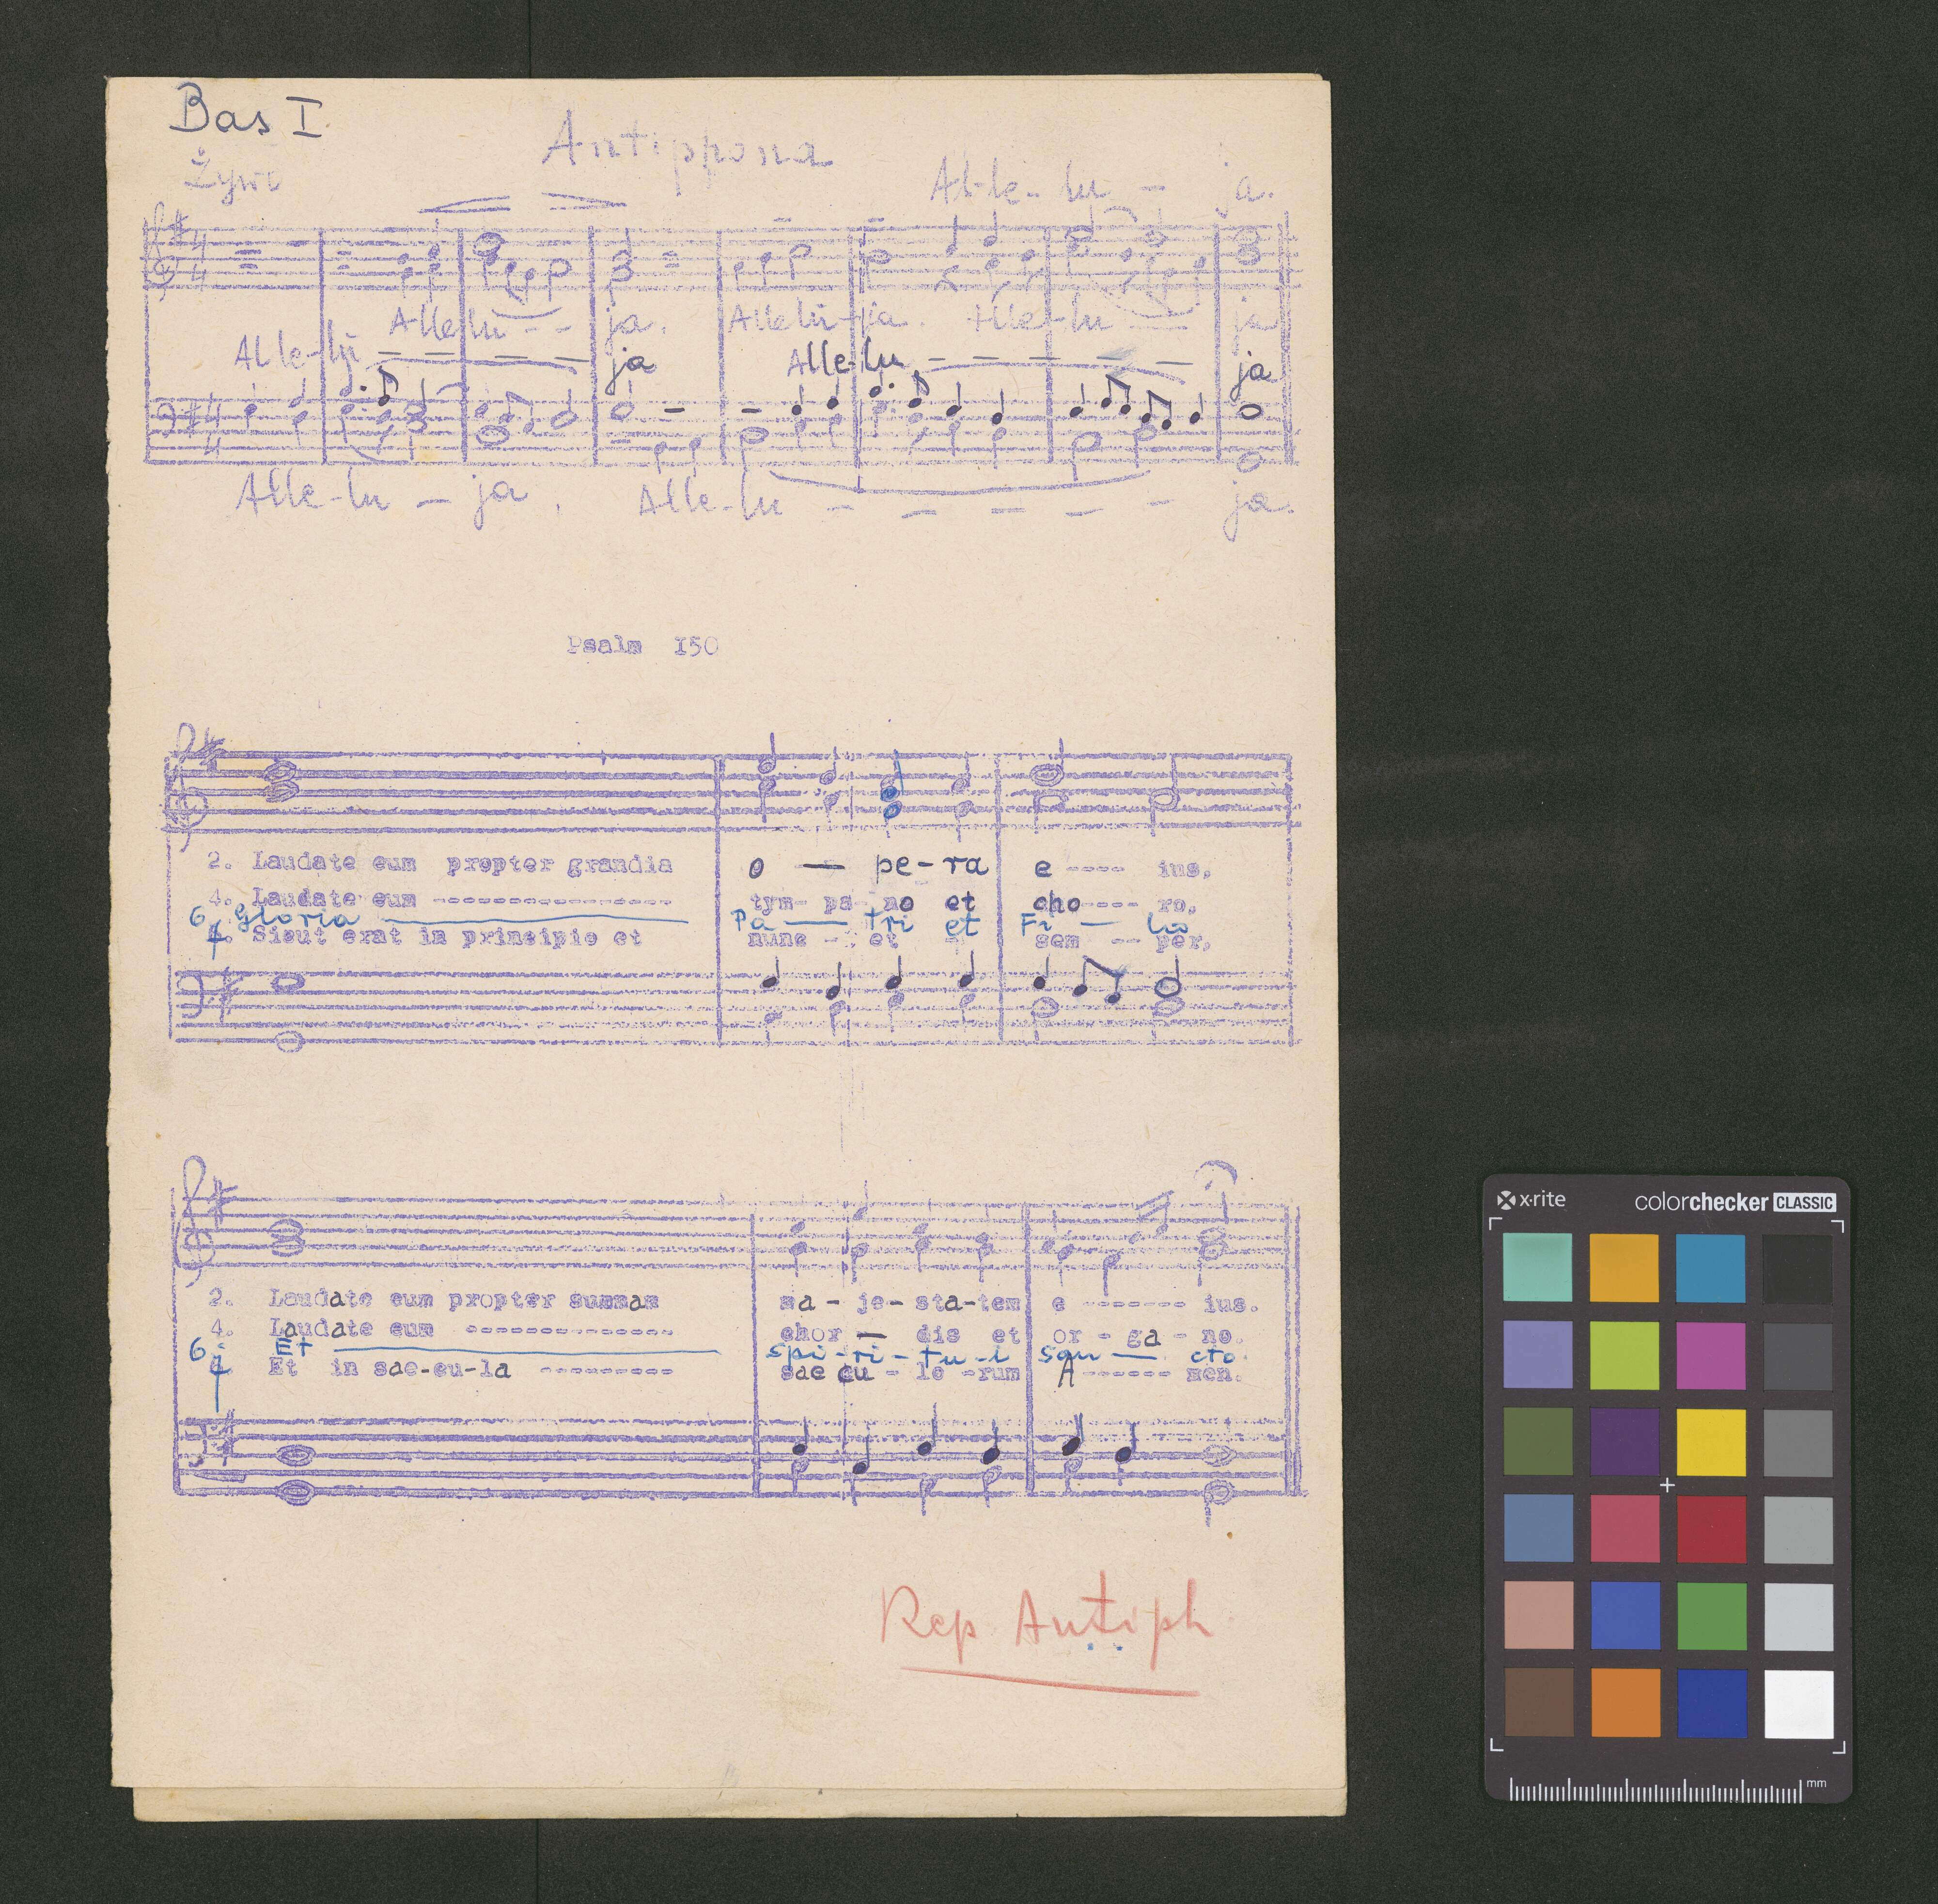 Bas I
Antiphona
Żywo
Al-le-lu - ja.
Allelu - - ja. Allelu-ja. Alle-lu ja
Alle-lu - - - - ja Alle-lu - - - - - ja
Alle-lu - ja. Alle-lu - - - - - ja.
Psalm I50
2. Laudate eum propter grandia o — pe-ra e ---- ius,
4. Laudate eum ---------------- tym- pa- no et cho---- ro,
6. Gloria Pa — tri et Fi — lio
7. Sicut erat in principio et nunc - et - sem -- per,
2. Laudate eum propter summam ma - je- sta-tem e ------- ius.
4. Laudate eum -------------- chor — dis et or - ga - no.
6. Et spi-ri-tu-i san — cto.
7 Et in sae-cu-la --------- sae cu - lo -rum A ------ men.
Rep Antiph
x-rite colorchecker CLASSIC
mm